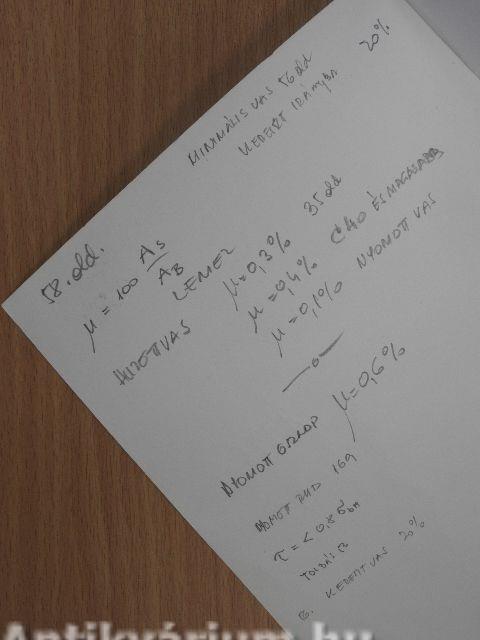 MINIMÁLIS VAS 56 old
KEDERT IRÁNYBA 20%
58. old.
μ = 100 As/AB
LEMEZ
HUZOTTVAS μ=0,3% 35 old
μ=0,4% C40 ÉS MAGASABB
μ=0,1% NYOMOTT VAS
NYOMOTT OSZLOP μ=0,6%
NYOMOTT RUD 169
τ = < 0,8
TOLDÁS
KEDERT VAS 20%
Antikvárium.hu